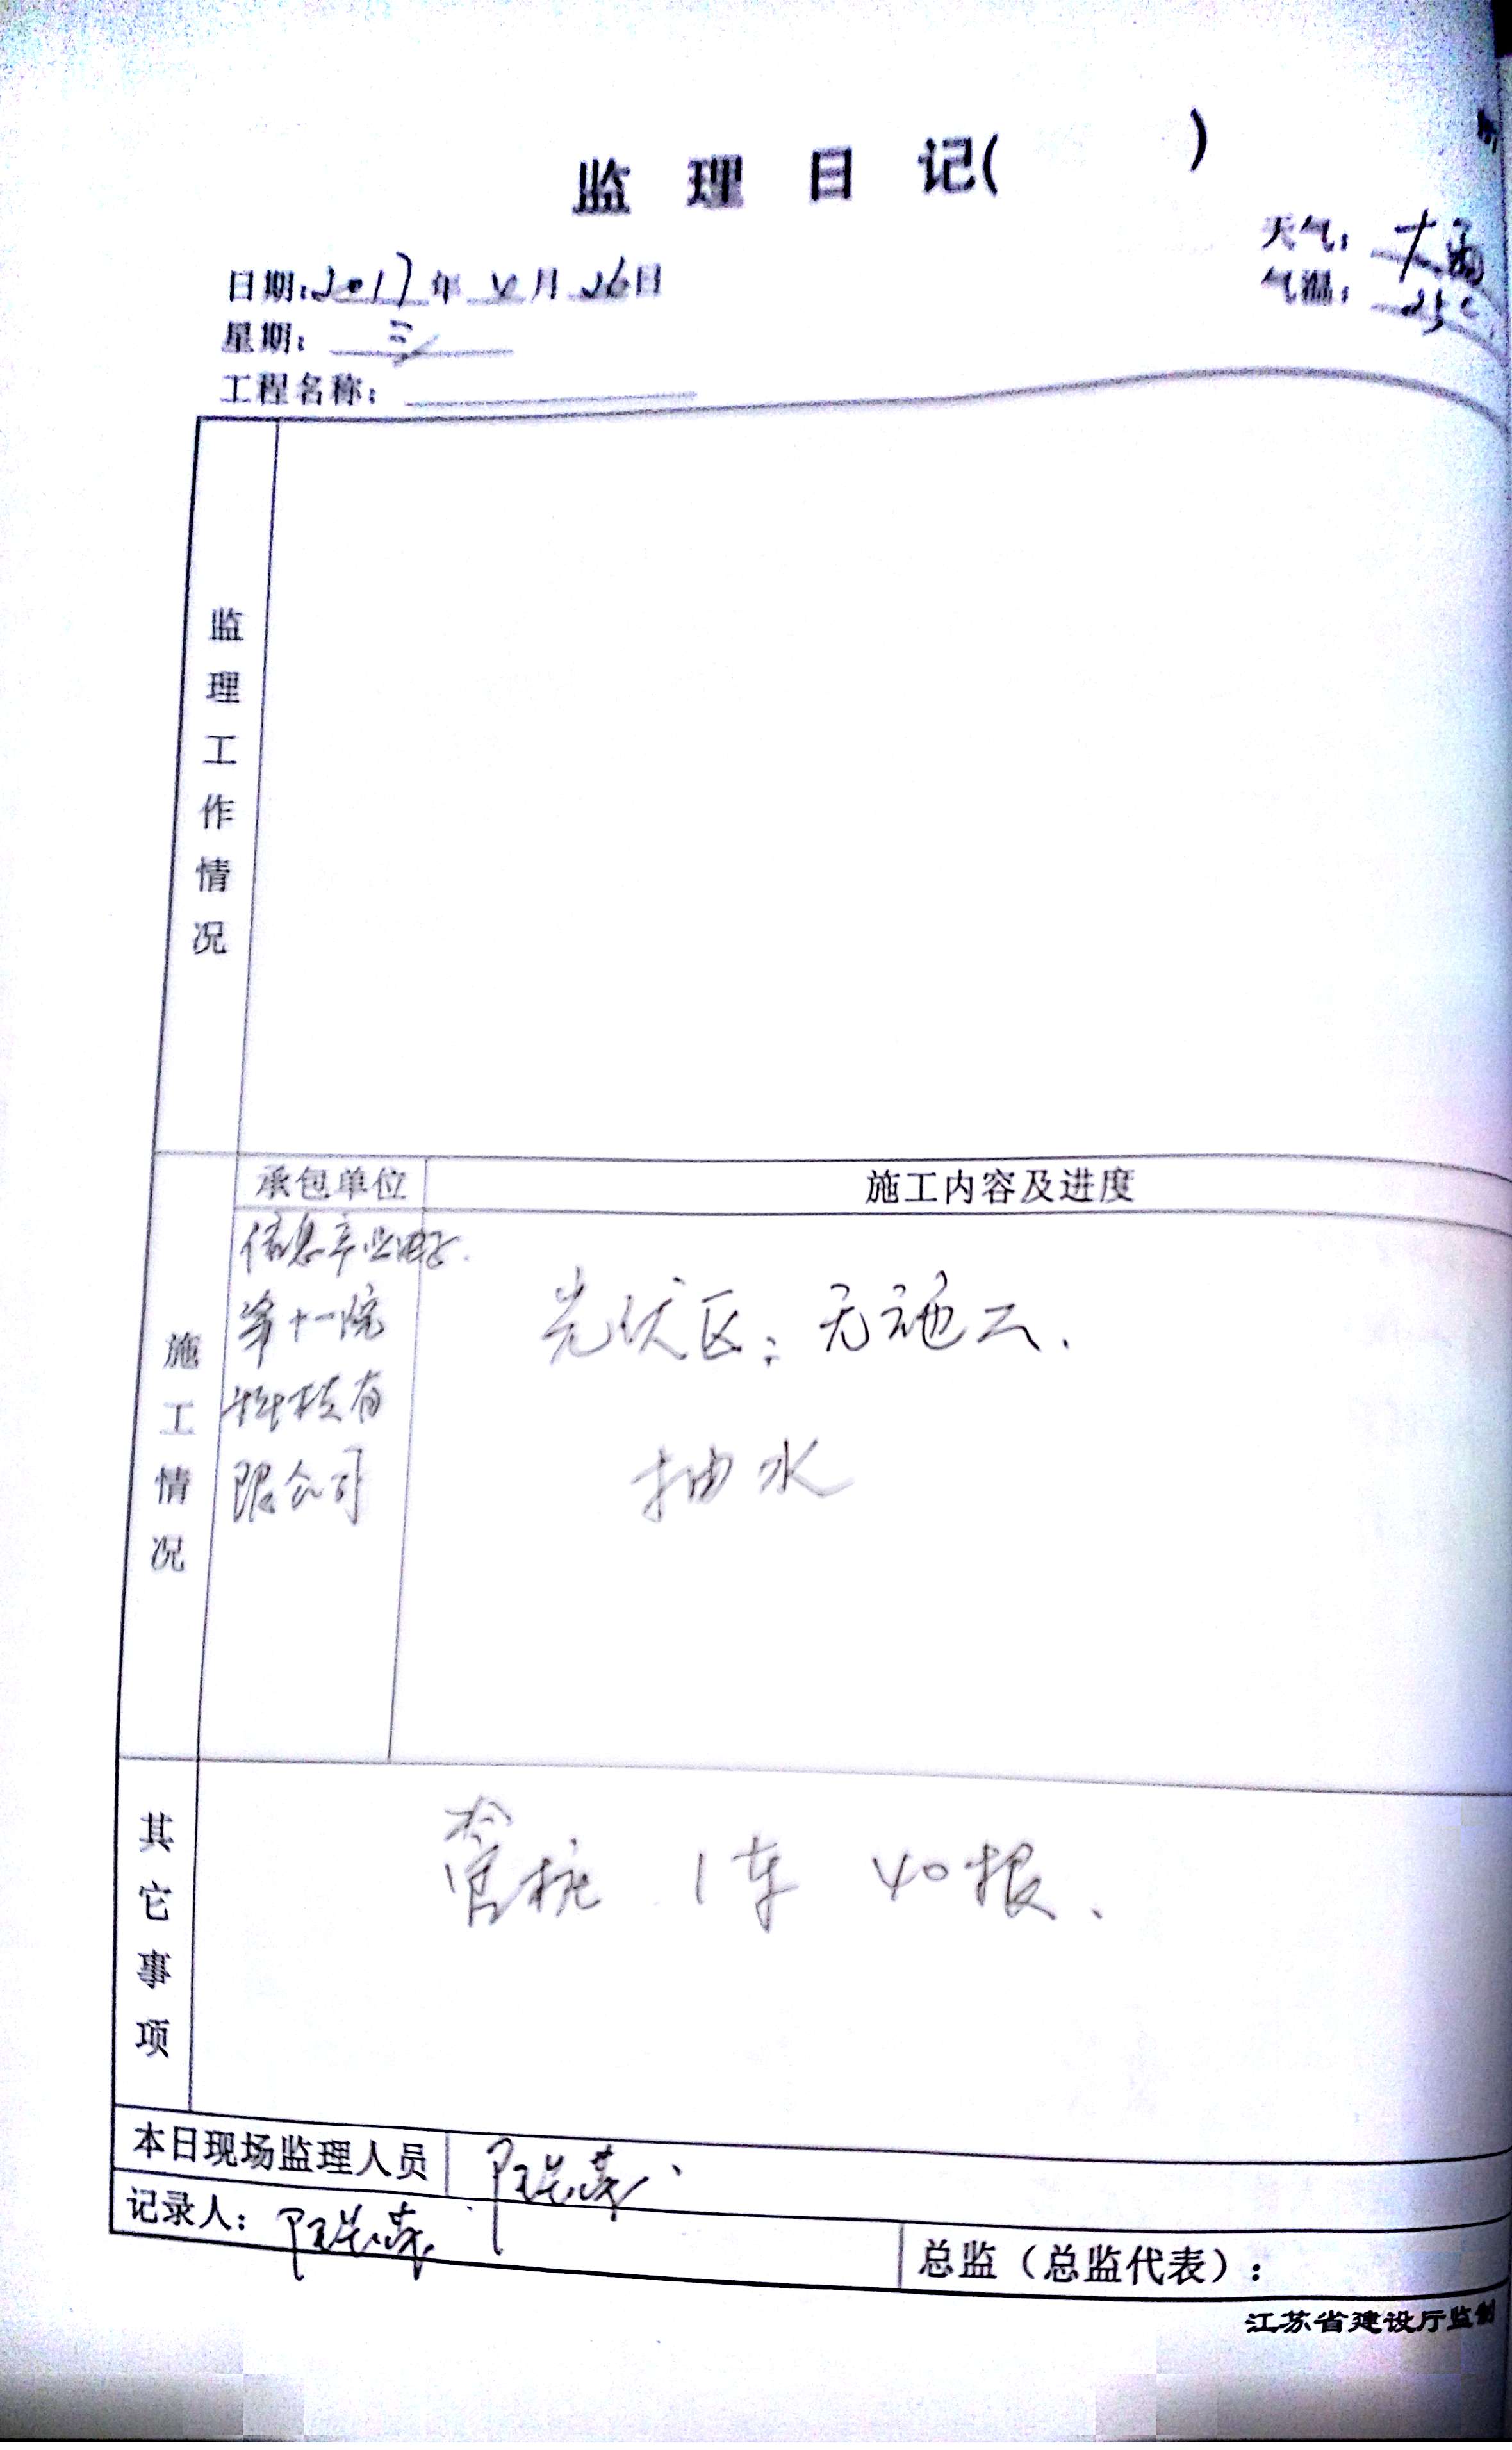 监 理 日 记( )
天气: 大雨
气温: 25℃
日期:2017年 月 26日
星期: 三
工程名称:
监理工作情况
施工情况
承包单位
施工内容及进度
信息产业电子
第十一院
科技有
限公司
光伏区: 无施工.
抽水
其它事项
管桩 1车 40根、
本日现场监理人员
记录人:
总监(总监代表):
江苏省建设厅监制